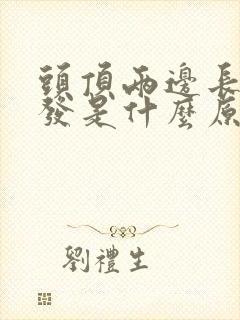 頭頂兩邊長
發是什麼原
劉禮生